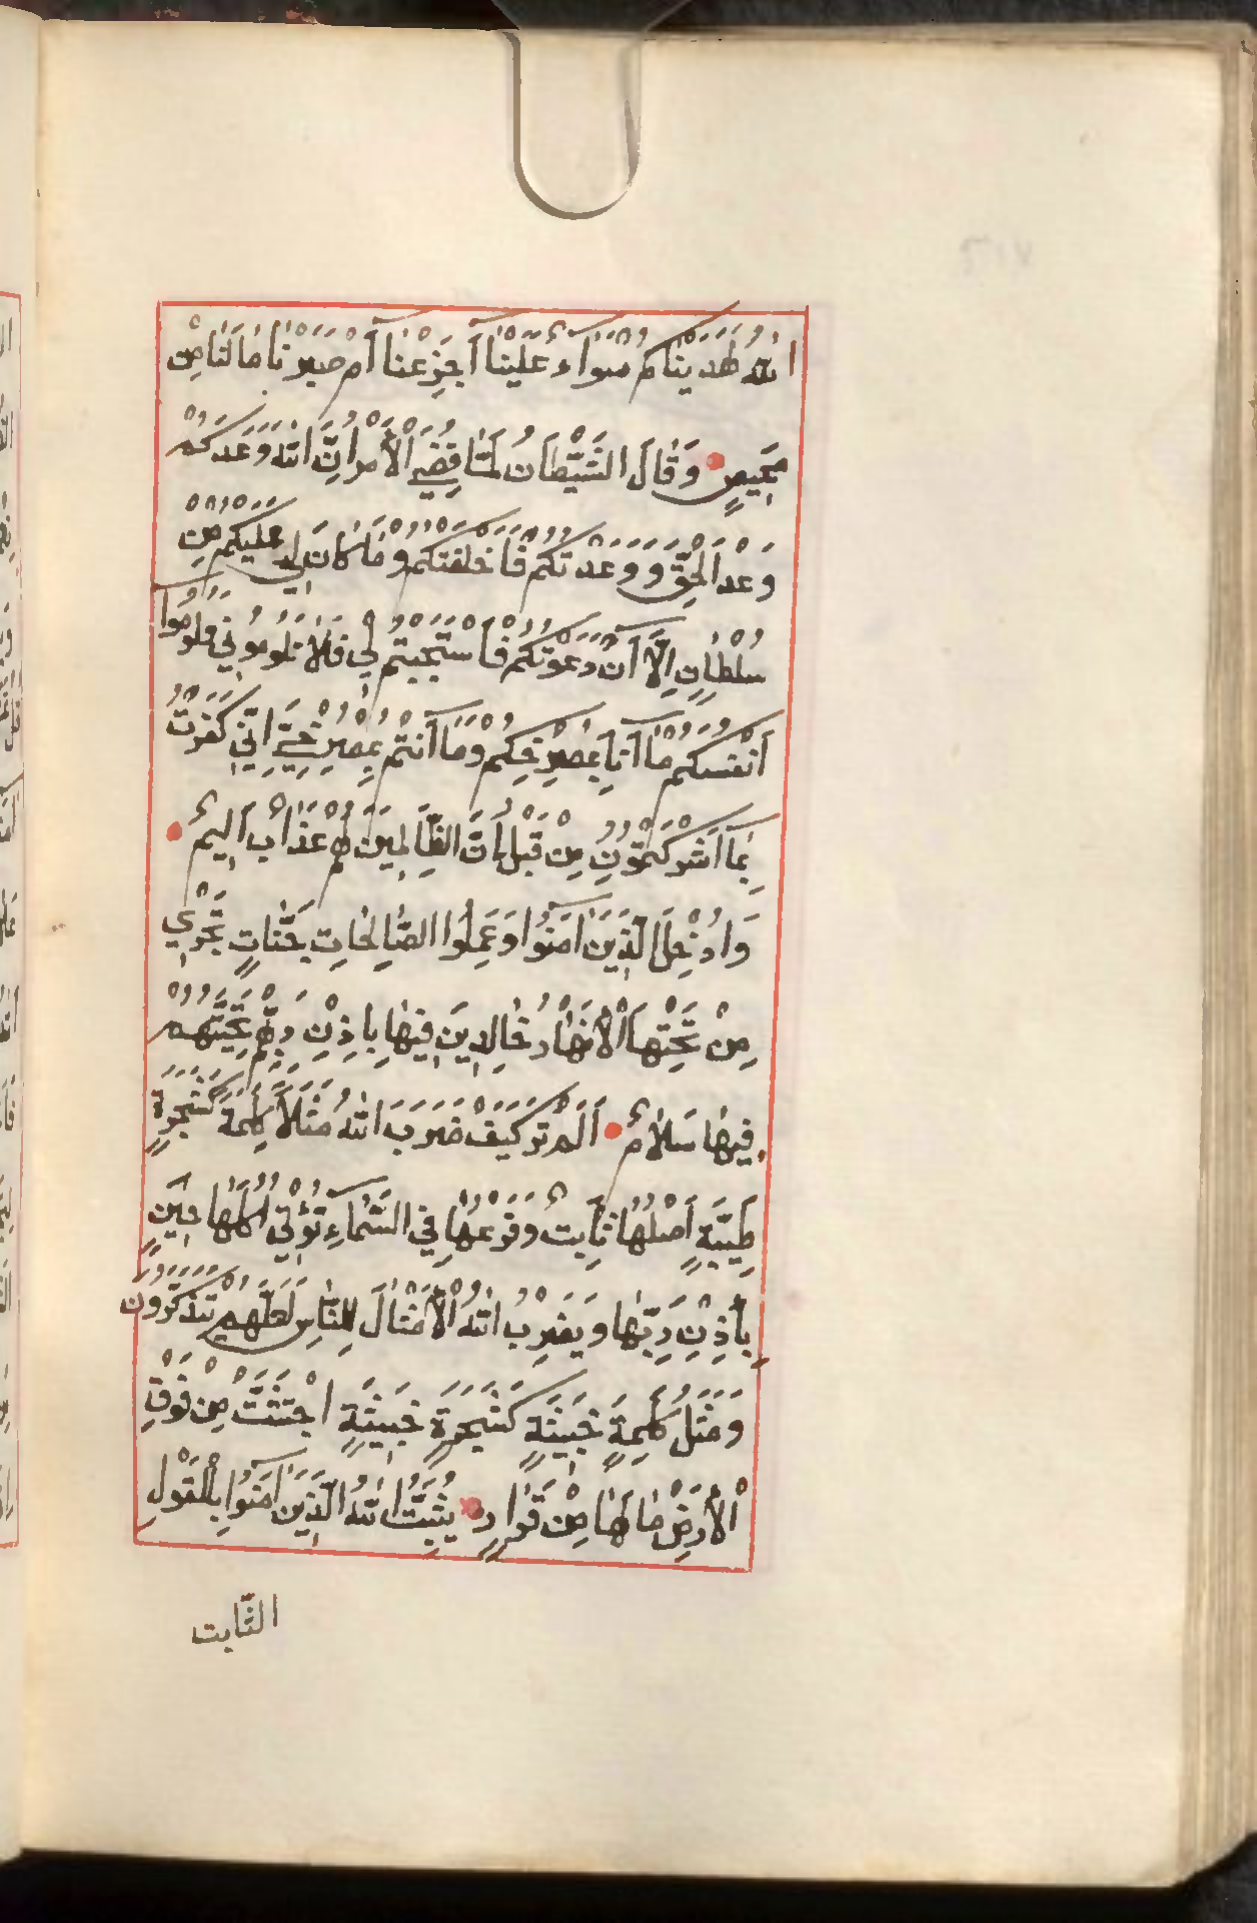 اللهُ لَهَدَيْنَاكُمْ سَوَآءٌ عَلَيْنَآ أَجَزِعْنَآ أَمْ صَبَرْنَا مَا لَنَا مِنْ
مَحِيصٍ وَقَالَ الشَّيْطَانُ لَمَّا قُضِيَ الْأَمْرُ إِنَّ اللهَ وَعَدَكُمْ
وَعْدَ الْحَقِّ وَوَعَدْتُكُمْ فَأَخْلَفْتُكُمْ وَمَا كَانَ لِي عَلَيْكُمْ مِنْ
سُلْطَانٍ إِلَّآ أَنْ دَعَوْتُكُمْ فَاسْتَجَبْتُمْ لِي فَلَا تَلُومُونِي وَلُومُوآ
أَنْفُسَكُمْ مَآ أَنَا بِمُصْرِخِكُمْ وَمَآ أَنْتُمْ بِمُصْرِخِيَّ إِنِّي كَفَرْتُ
بِمَآ أَشْرَكْتُمُونِ مِنْ قَبْلُ إِنَّ الظَّالِمِينَ لَهُمْ عَذَابٌ أَلِيمٌ
وَأُدْخِلَ الَّذِينَ آمَنُوا وَعَمِلُوا الصَّالِحَاتِ جَنَّاتٍ تَجْرِي
مِنْ تَحْتِهَا الْأَنْهَارُ خَالِدِينَ فِيهَا بِإِذْنِ رَبِّهِمْ تَحِيَّتُهُمْ
فِيهَا سَلَامٌ أَلَمْ تَرَ كَيْفَ ضَرَبَ اللهُ مَثَلًا كَلِمَةً كَشَجَرَةٍ
طَيِّبَةٍ أَصْلُهَا ثَابِتٌ وَفَرْعُهَا فِي السَّمَآءِ تُؤْتِي أُكُلَهَا حِينٍ
بِإِذْنِ رَبِّهَا وَيَضْرِبُ اللهُ الْأَمْثَالَ لِلنَّاسِ لَعَلَّهُمْ تَتَذَكَّرُونَ
وَمَثَلُ كَلِمَةٍ خَبِيثَةٍ كَشَجَرَةٍ خَبِيثَةٍ اجْتُثَّتْ مِنْ فَوْقِ
الْأَرْضِ مَا لَهَا مِنْ قَرَارٍ يُثَبِّتُ اللهُ الَّذِينَ آمَنُوا بِالْقَوْلِ
الثَّابت